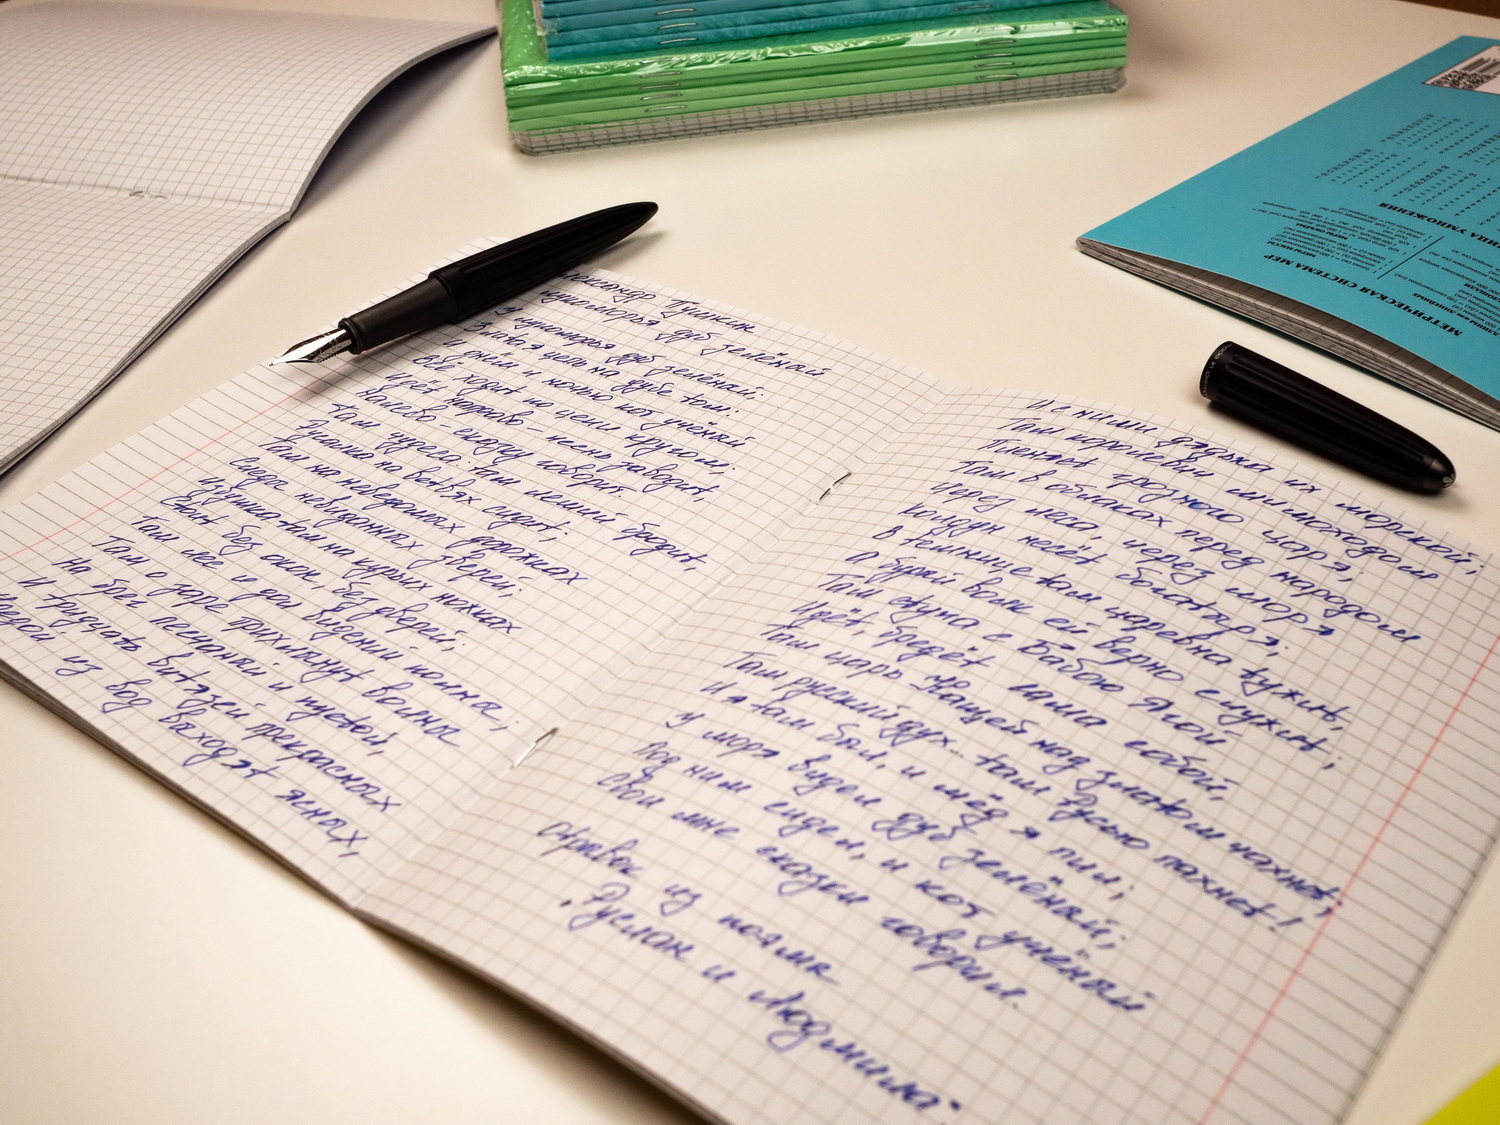 Александр Пушкин
лукоморья дуб зелёный
У лукоморья дуб зелёный;
Златая цепь на дубе том:
И днём и ночью кот учёный
Всё ходит по цепи кругом;
Идёт направо - песнь заводит,
Налево - сказку говорит.
Там чудеса: там леший бродит,
Русалка на ветвях сидит;
Там на неведомых дорожках
Следы невиданных зверей;
Избушка там на курьих ножках
Стоит без окон, без дверей;
Там лес и дол видений полны;
Там о заре прихлынут волны
На брег песчаный и пустой,
И тридцать витязей прекрасных
Чредой из вод выходят ясных,
И с ними дядька их морской;
Там королевич мимоходом
Пленяет грозного царя;
Там в облаках перед народом
Через леса, через моря
Колдун несёт богатыря;
В темнице там царевна тужит,
А бурый волк ей верно служит;
Там ступа с Бабою Ягой
Идёт, бредёт сама собой,
Там царь Кащей над златом чахнет;
Там русский дух... там Русью пахнет!
И я там был, и мёд я пил;
У моря видел дуб зелёный;
Под ним сидел, и кот учёный
Свои мне сказки говорил.
отрывок из поэмы
"Руслан и Людмила"
МЕТРИЧЕСКАЯ СИСТЕМА МЕР
УМНОЖЕНИЯ